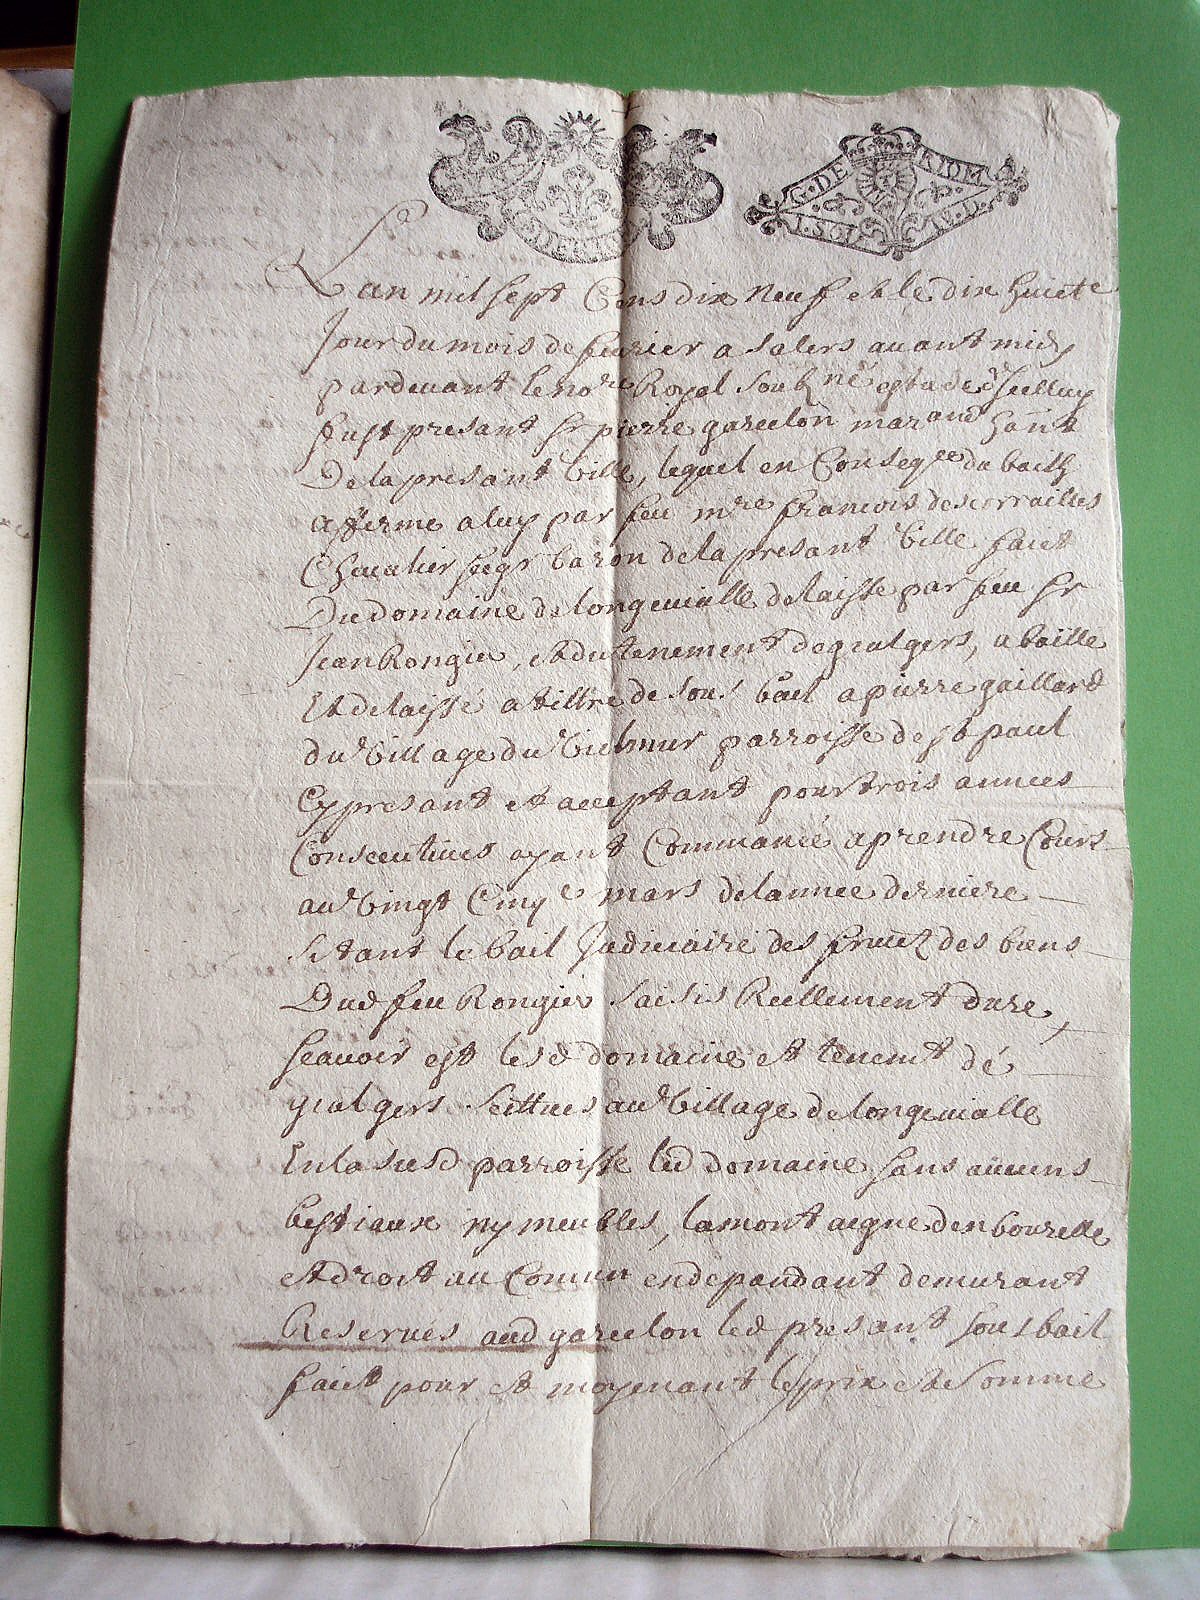 G. DE RIOM
1. SOL IV. D.
DE RIOM
Lan mil sept Cens dix neuf et le dix huicte
Jour du mois de feurier a salers auant midy
pardeuant le nore Royal soubzne
fust presant sr pierre garcelon marand hant
De la presant Ville, lequel en Conseqce du bailh
afferme a luy par feu mre francois descorrailles
Cheualier segr baron de la presant Ville faict
Du domaine de longeuialle delaisse par feu sr
Jean Rongier, et du tenement de gialgers, a baille
Et delaissé a tiltre de sous bail a pierre gaillard
du Village du Vielmur parroisse de st paul
Cy presant et acceptant pour trois annees
Consecutiues ayant Commancé a prendre Cours
au Vingt Cinqe mars de lannee derniere
se tant le bail Judiciaire des fruicz des biens
Dud feu Rongier saisis Reellement dure,
scauoir est lesd domaine et tenemt de
gialgers scittues au Village de longeuialle
En la susd parroisse led domaine sans aucuns
bestiaux ny meubles, la montaigne
et droit au Comun en depandant demurant
Reserués aud garcelon led presant sous bail
faict pour et moyenant le prix et somme